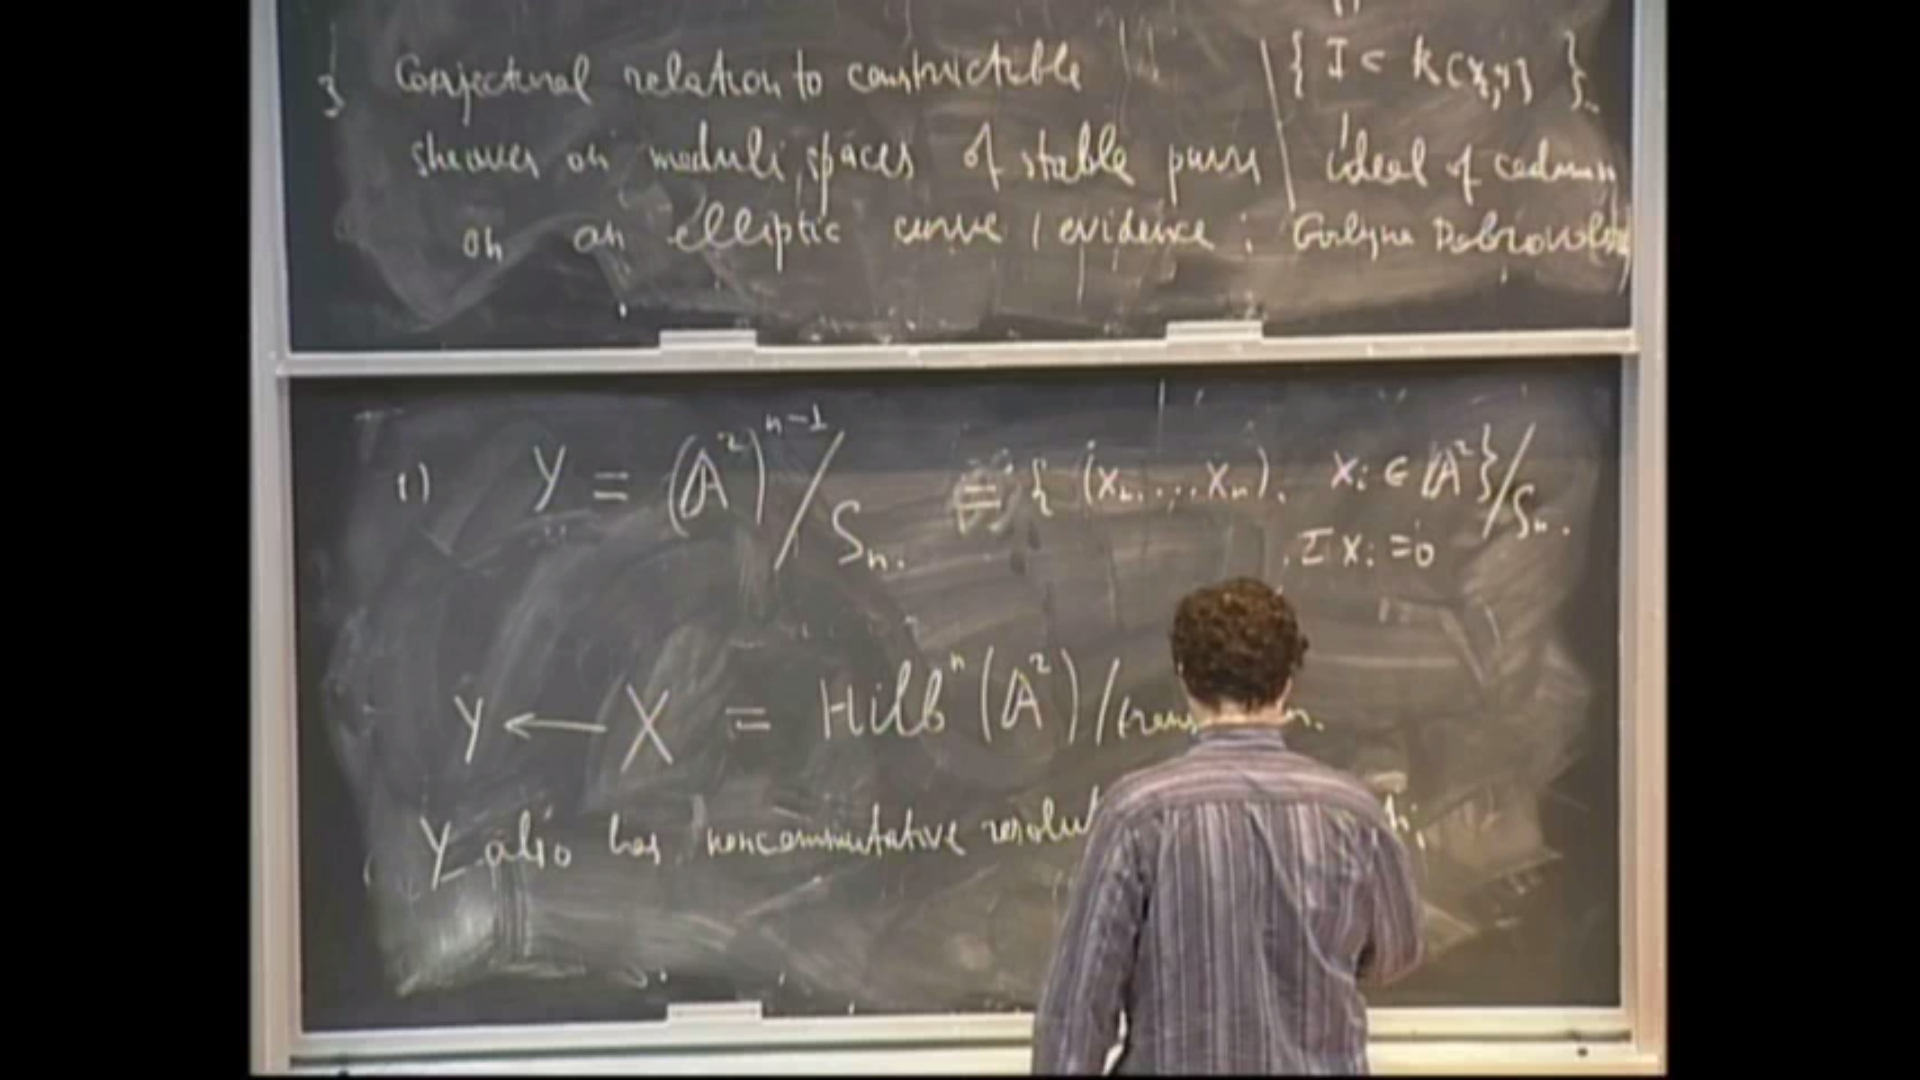 3 Conjectural relation to constructible
sheaves on moduli spaces of stable pairs
on an elliptic curve / evidence :
{ I ⊂ k[x,y] }
ideal of
1) Y = (𝔸²)ⁿ⁻¹ / Sₙ. = { (x₁, ..., xₙ), xᵢ ∈ 𝔸² } / Sₙ.
Σ xᵢ = 0
Y ← X = Hilbⁿ(𝔸²) /
Y also has noncommutative